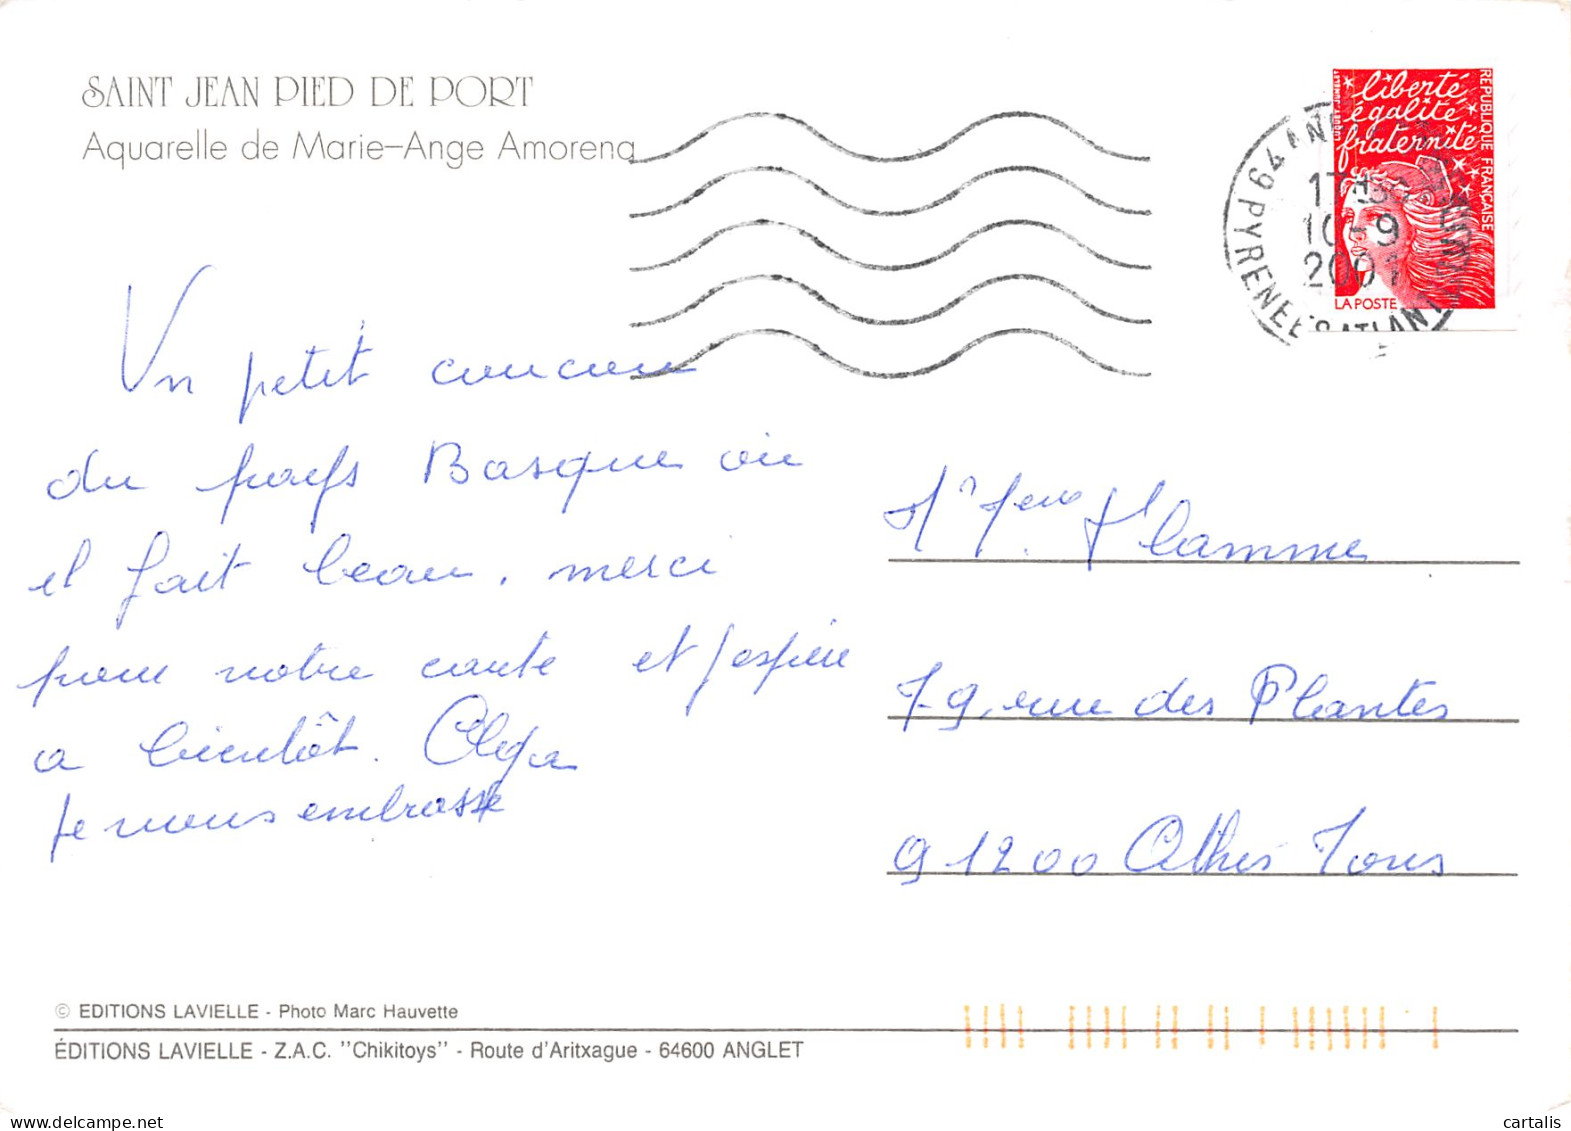 SAINT JEAN PIED DE PORT
Aquarelle de Marie-Ange Amorena
liberté
égalité
fraternité
REPUBLIQUE FRANÇAISE
LA POSTE
64 PYRENEES ATLANT
10-9
2001
Un petit coucou
du pays Basque où
il fait beau, merci
pour votre carte et j'espère
a bientôt. Olga
Je vous embrasse
Flamme
79, rue des Plantes
91200 Athis Mons
© EDITIONS LAVIELLE - Photo Marc Hauvette
ÉDITIONS LAVIELLE - Z.A.C. "Chikitoys" - Route d'Aritxague - 64600 ANGLET
cartalis